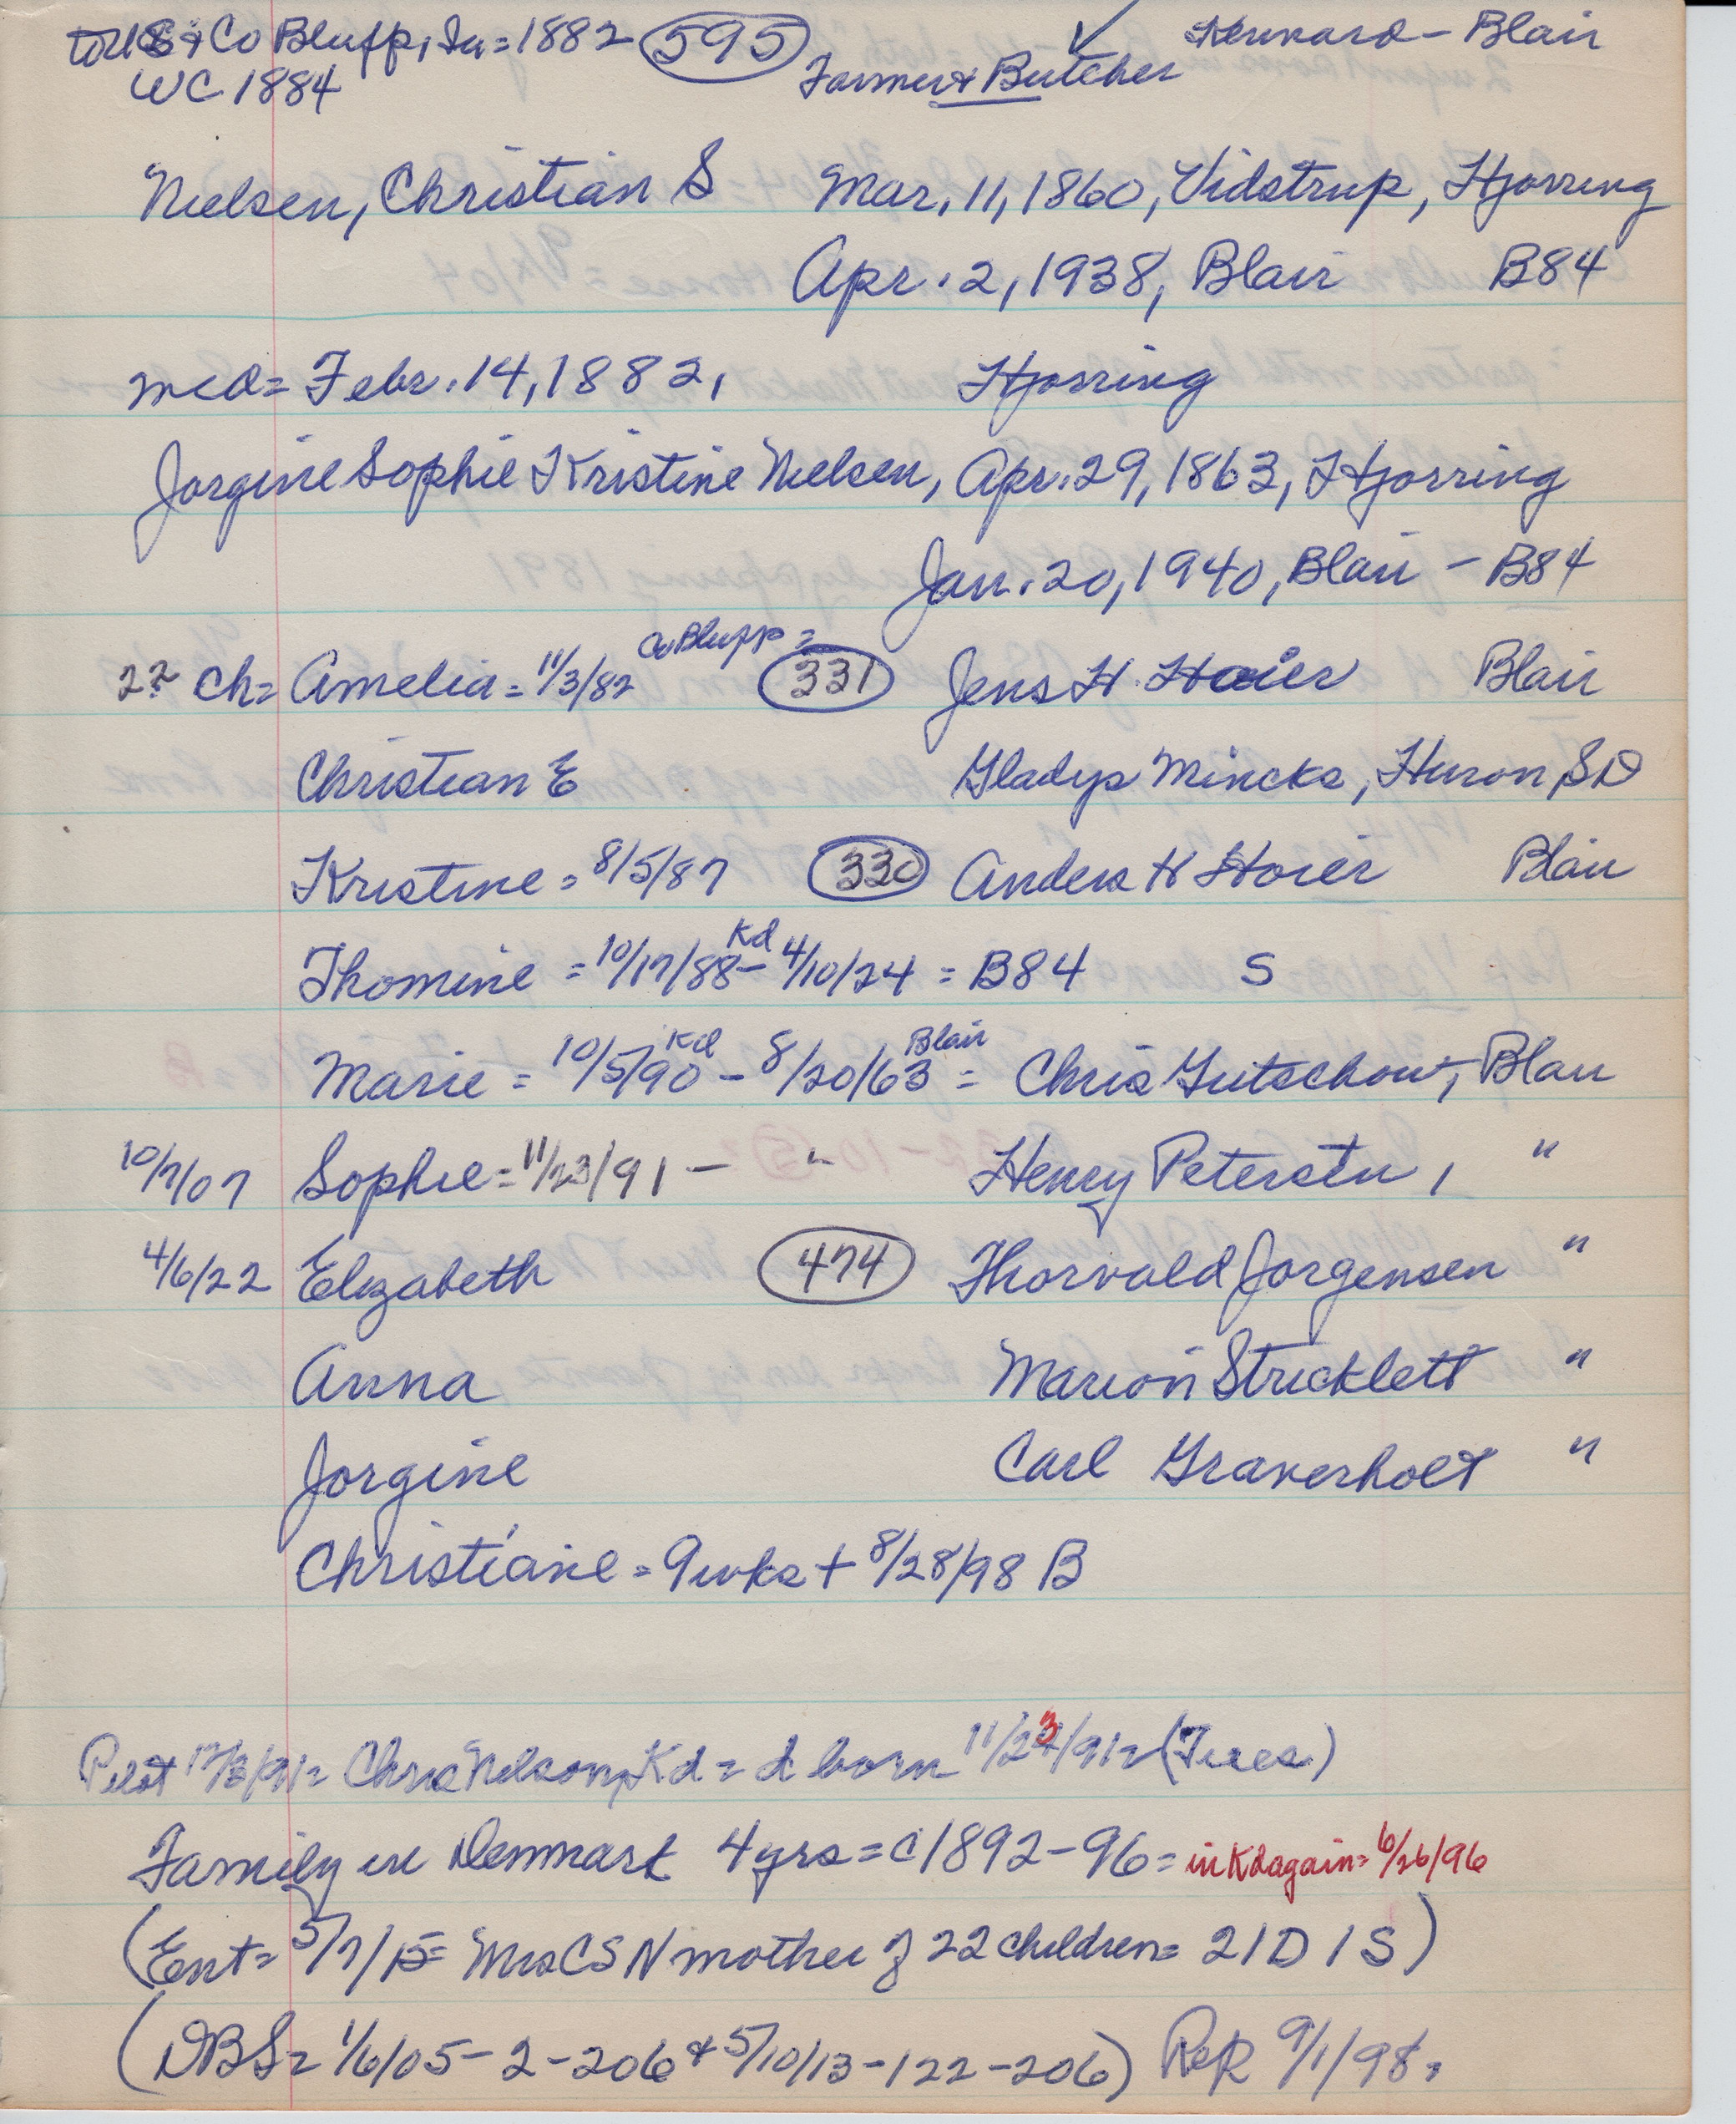 to US & Co Bluffs, Ia = 1882 595 ✓ Kennard - Blair
WC 1884 Farmer & Butcher
Nielsen, Christian S Mar, 11, 1860, Vidstrup, Hjorring
Apr. 2, 1938, Blair B84
mcd = Febr. 14, 1882, Hjorring
Jorgine Sophie Kristine Nielsen, Apr. 29, 1863, Hjorring
Jan. 20, 1940, Blair - B84
Co Bluffs =
22 ch = Amelia = 11/3/82 331 Jens H. Hoier Blair
Christian E Gladys Mincks, Huron, SD
Kristine = 8/5/87 330 Anders H Hoier Blair
Thomine = 10/17/88 Kd - 4/10/24 = B84 S
Marie = 10/5/90 Kd - 8/20/63 Blair = Chris Gutschow, Blair
10/7/07 Sophie = 11/23/91 - " Henry Petersen, "
4/6/22 Elizabeth 474 Thorvald Jorgensen "
Anna Marion Stricklett "
Jorgine Carl Graverholt "
Christiane = 9 wks + 8/28/98 B
Pilot 12/3/91 = Chris Nelson, Kd = d born 11/23/91 = (Tues)
Family in Denmark 4 yrs = c 1892-96 = in Kd again = 6/26/96
(Ent = 5/7/15 = Mrs CSN mother of 22 children = 21 D 1 S)
(DBS = 1/6/05 - 2 - 206 & 5/10/13 - 122 - 206) Rep 9/1/98 =